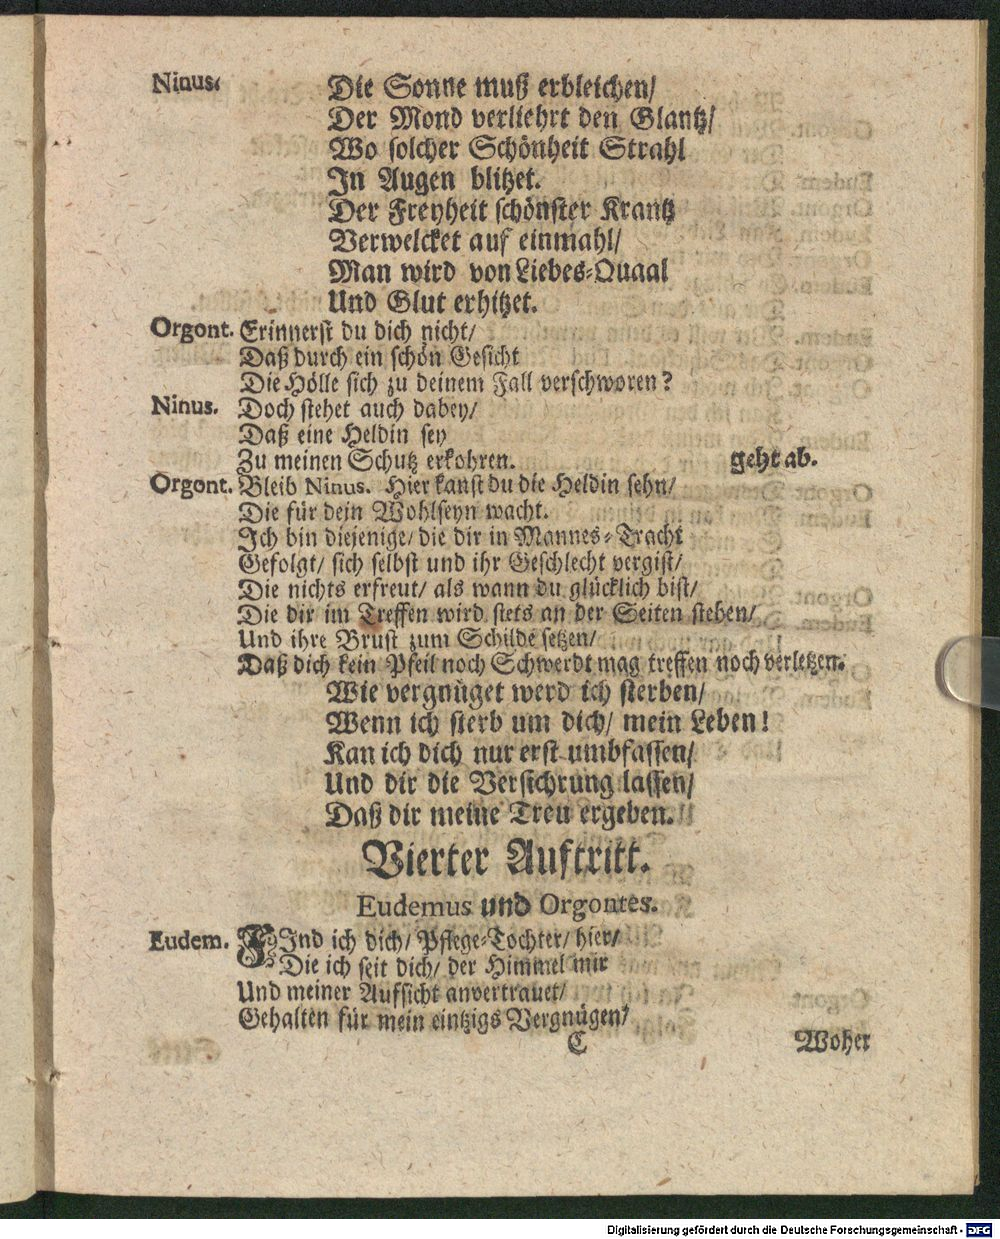 Ninus. Die Sonne muß erbleichen/
Der Mond verliehrt den Glantz/
Wo solcher Schönheit Strahl
In Augen blitzet.
Der Freyheit schönster Krantz
Verwelcket auf einmahl/
Man wird von Liebes-Quaal
Und Glut erhitzet.
Orgont. Erinnerst du dich nicht/
Daß durch ein schön Gesicht
Die Hölle sich zu deinem Fall verschworen?
Ninus. Doch stehet auch dabey/
Daß eine Heldin sey
Zu meinen Schutz erkohren. geht ab.
Orgont. Bleib Ninus. Hier kanst du die Heldin sehn/
Die für dein Wohlseyn wacht.
Ich bin diejenige/ die dir in Mannes-Tracht
Gefolgt/ sich selbst und ihr Geschlecht vergist/
Die nichts erfreut/ als wann du glücklich bist/
Die dir im Treffen wird stets an der Seiten stehen/
Und ihre Brust zum Schilde setzen/
Daß dich kein Pfeil noch Schwerdt mag treffen noch verletzen.
Wie vergnüget werd ich sterben/
Wenn ich sterb um dich/ mein Leben!
Kan ich dich nur erst umbfassen/
Und dir die Versichrung lassen/
Daß dir meine Treu ergeben.
Vierter Auftritt.
Eudemus und Orgontes.
Eudem. FInd ich dich/ Pflege-Tochter/ hier/
Die ich seit dich/ der Himmel mir
Und meiner Aufsicht anvertrauet/
Gehalten für mein eintzigs Vergnügen/
C Woher
Digitalisierung gefördert durch die Deutsche Forschungsgemeinschaft - DFG